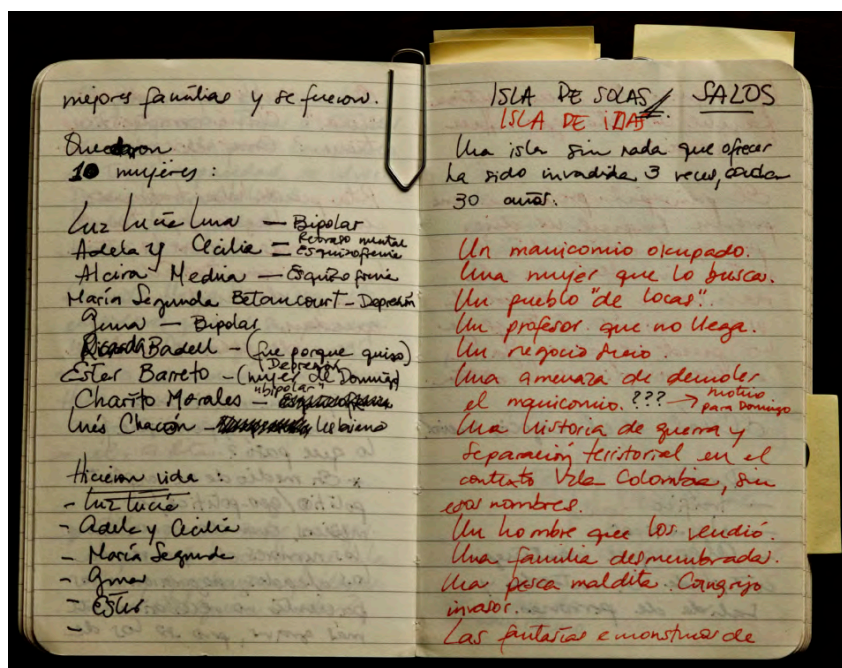 mejores familias y se fueron.
Quedaron
10 mujeres:
Luz Lucía Luna — Bipolar
Adela y Cecilia = Retraso mental
Esquizofrenia
Alcira Medina — Esquizofrenia
María Segunda Betancourt - Depresión
Gema — Bipolar
Ricarda Badell - (fue porque quiso)
Depresión
Ester Barreto - (mujer de Domingo)
"bipolar"
Charito Morales -
Inés Chacón - lesbiana
Hicieron vida:
- Luz Lucía
- Adela y Cecilia
- María Segunda
- Gema
- Ester
-
ISLA DE SOLAS // SALOS
ISLA DE IDAS
Una isla sin nada que ofrecer
ha sido invadida 3 veces, cada
30 años.
Un manicomio okupado.
Una mujer que lo busca.
Un pueblo "de locas".
Un profesor que no llega.
Un negocio sucio.
Una amenaza de demoler
el manicomio. ??? → motivo
para Domingo
Una historia de guerra y
separación territorial en el
contexto Vzla Colombia, sin
esos nombres.
Un hombre que los vendió.
Una familia desmembrada.
Una pesca maldita. Cangrejo
invasor.
Las fantasías e monstruos de